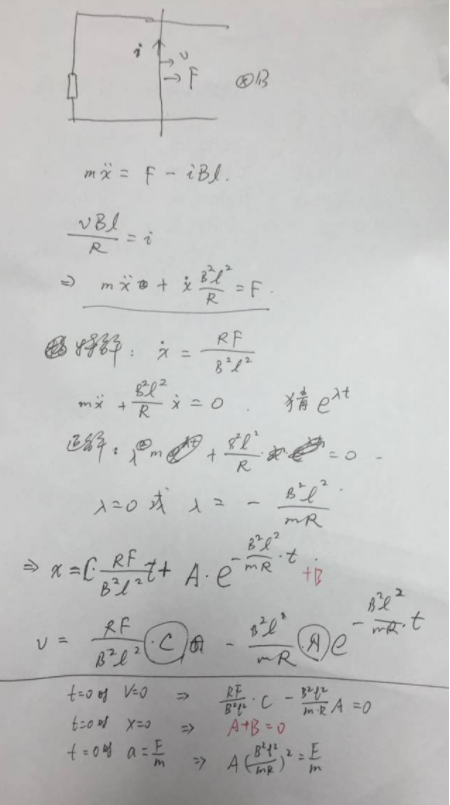 i
v
F
⊗B
mẍ = F - iBl.
vBl/R = i
⇒ mẍ + ẋ B²l²/R = F.
特解: ẋ = RF/B²l²
mẍ + B²l²/R ẋ = 0. 猜 e^λt
λm + B²l²/R = 0
λ=0 或 λ = - B²l²/mR
⇒ x = C·RF/B²l² t + A·e^(-B²l²/mR·t) + B
v = RF/B²l²·C - B²l²/mR·A e^(-B²l²/mR·t)
t=0时 v=0 ⇒ RF/B²l²·C - B²l²/mR A = 0
t=0时 x=0 ⇒ A+B=0
t=0时 a=F/m ⇒ A(B²l²/mR)² = F/m